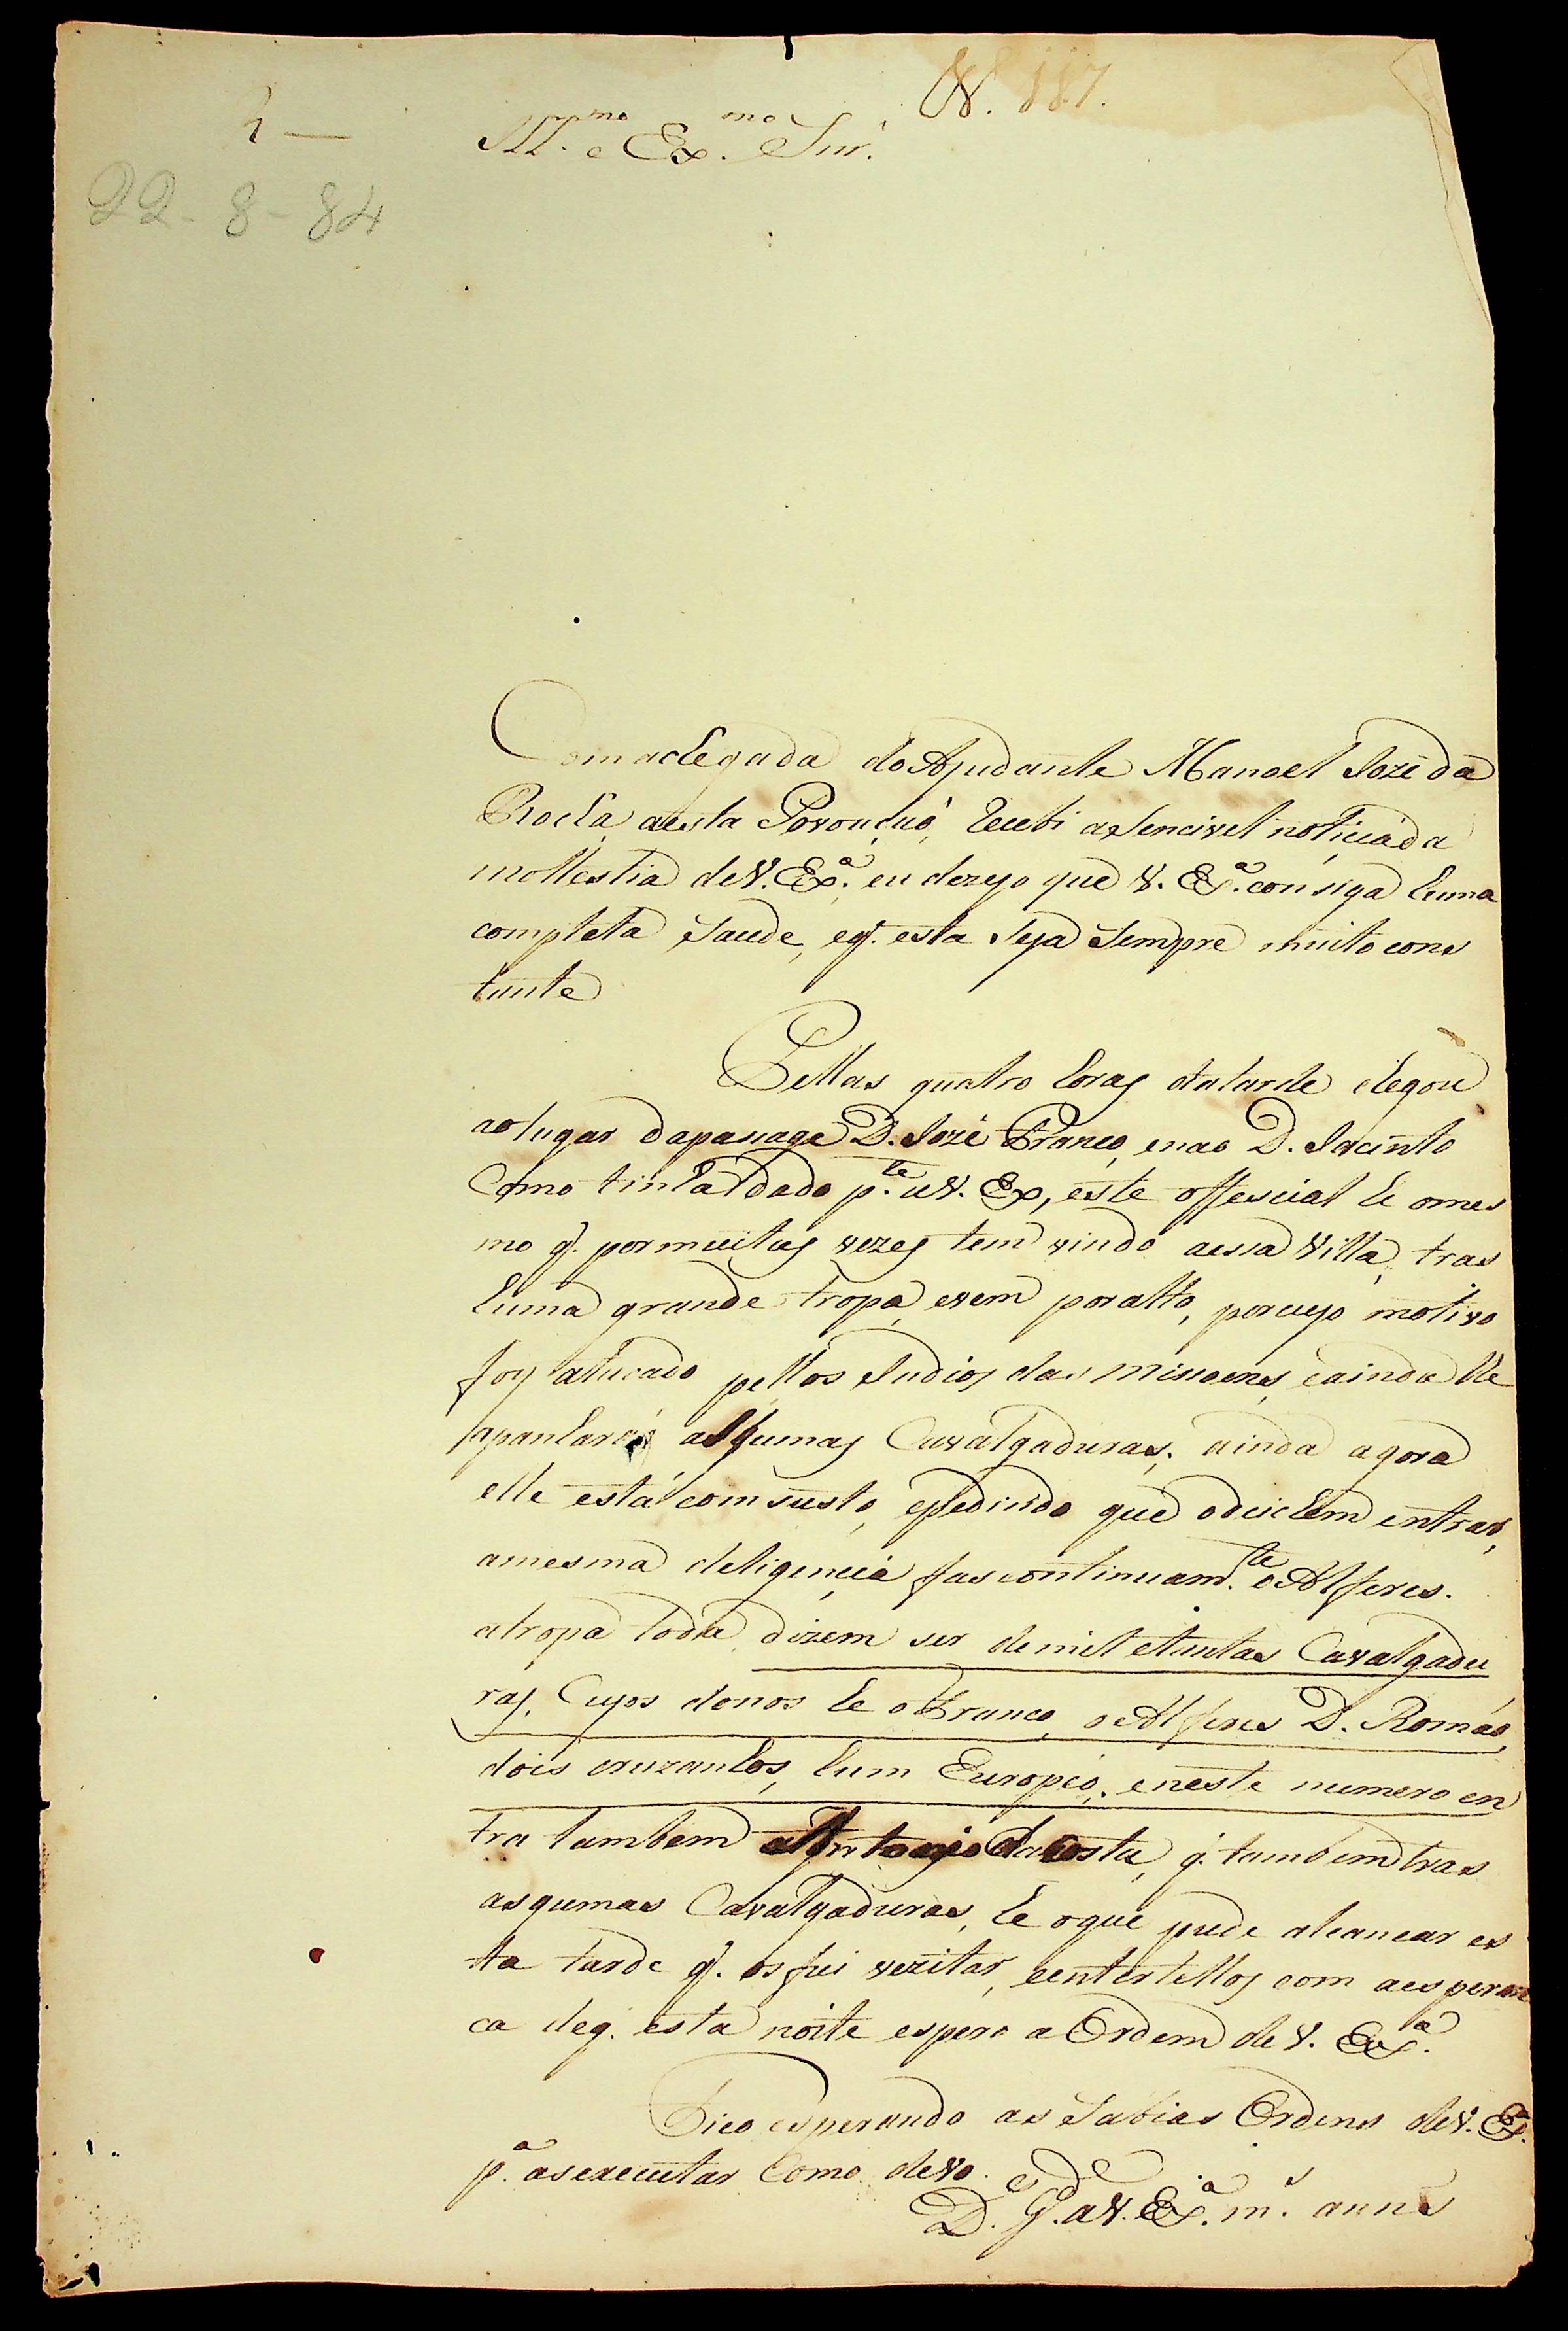 N. 187.
1 —
Ill.mo e Ex.mo Snr.
22-8-84
Comachegada do Ajudante Manoel Jozé da
Rocha aesta Povoação, recebi asencivel noticiada
mollestia deV. Exa. eu dezejo que V. Exa. consiga huma
completa saude, eq. esta seja sempre muito cons
tante
Pellas quatro horas datarde chegou
aolugar dapasage D. Jozé Franco, enao D. Jacinto
Como tinha dado p.te aV. Ex, este offescial he omes
mo q. pormuitas vezes tem vindo aessa Villa, tras
huma grande tropa, evem poralto, porcujo motivo
foy atacado pellos Indios das missoens, eainda lhe
apanharaõ algumas Cavalgaduras; ainda agora
elle está comsusto, epedindo que odeichem entrar,
amesma deligencia fas continuam.te o Alferes.
atropa toda dizem ser demil etantas Cavalgadu
ras, Cujos donos he oFranco, oAlferes D. Romão,
dois cruzanhos, hum Europeo, eneste numero en
tra tambem Antonio daCosta, q. tambem tras
asgumas Cavalgaduras, he oque pude alcancar es
ta tarde q. os fui vezitar, eentertellos com aesperan
ca deq. esta noite espero a Ordem deV. Exa.
Fico esperando as Sabias Ordens deV. Exa.
p.a asexecutar Como devo.
D.s G.de aV. Exa. m.s anns